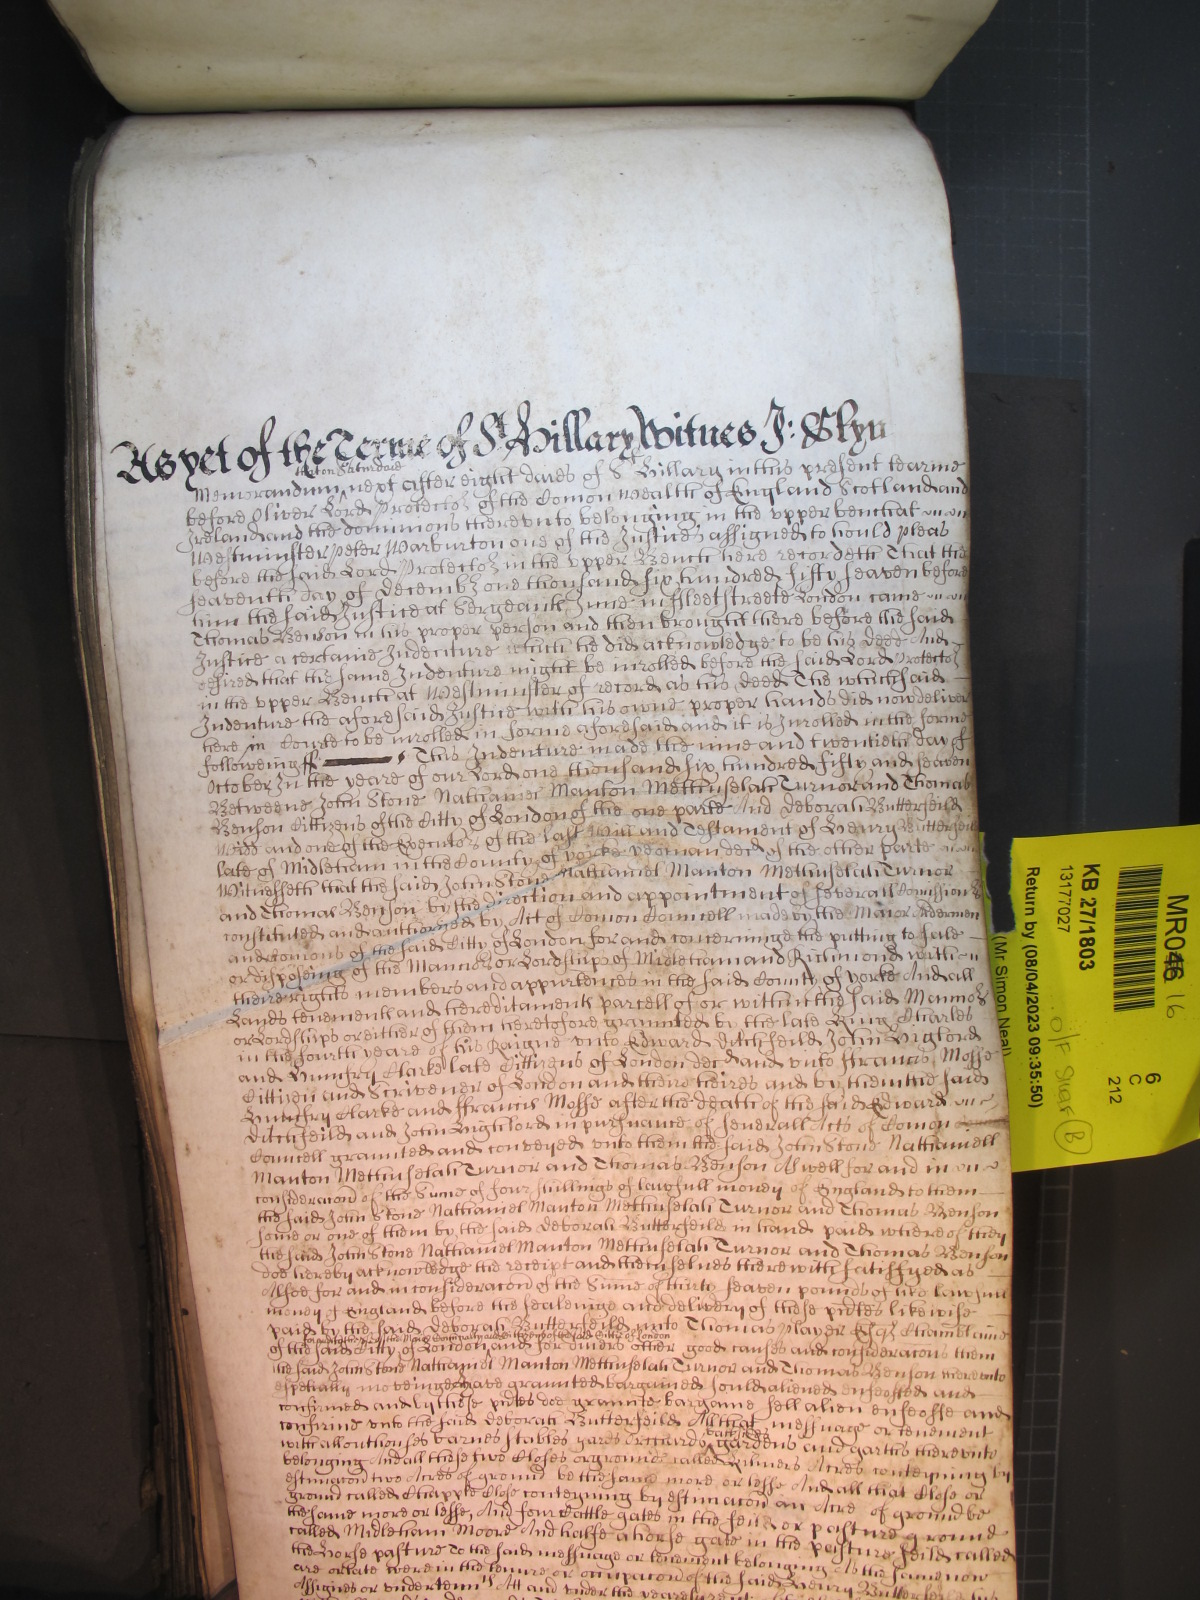 As yet of the Terme of St Hillary Witnes J: Glyn
that on Saturdaie
Memorandum next after eight daies of St Hillary in this present tearme
before Oliver Lord Protector of the Comon Wealth of England Scotland and
Ireland and the dominions therevnto belonging in the vpper bench at
Westminster Peter Warburton one of the Justices assigned to hould pleas
before the said Lord Protector in the vpper Bench here recordeth That the
seaventh day of Decemb one thousand six hundred fifty seaven before
him the said Justice at Sergeants Inne in Fleetstreete London came
Thomas Benson in his proper person and then brought there before the said
Justice a certaine Indenture which he did acknowledge to be his deed And
desired that the same Indenture might be inrolled before the said Lord Protector
in the vpper Bench at Westminster of record as his deed The which said
Indenture the aforesaid Justice with his owne proper hands did now deliver
here in Courte to be inrolled in forme aforesaid and it is Inrolled in the forme
followeing ss This Indenture made the nine and twentieth day of
October In the yeare of our Lord one thousand six hundred fifty and seaven
Betweene John Stone Nathaniel Manton Methuselah Turnor and Thomas
Benson Cittizens of the Citty of London of the one parte And Deborah Butterfeild
Widd and one of the Executors of the last Will and Testament of Henry Butterfeild
late of Midleham in the County of yorke yeoman decd of the other parte
Witnesseth that the said John Stone Nathaniel Manton Methuselah Turnor
and Thomas Benson by the direction and appointment of severall Comission
constituted and authorized by Act of Comon Councell made by the Maior Aldermen
and Comons of the said Citty of London for and concerninge the putting to sale
or disposeing of the Mannors or Lordships of Midleham and Richmond with
theire rights members and appurtences in the said County of yorke And all
Lands tenements and hereditaments parcell of or within the said Mannors
or Lordships or either of them heretofore graunted by the late King Charles
in the fourth yeare of his Raigne vnto Edward Ditchfeild John Highlord
and Humfry Clarke late Cittizens of London decd and vnto Francis Mosse
Cittizen and Scrivener of London and theire heires and by them the said
Humfry Clarke and Francis Mosse after the death of the said Edward
Ditchfeild and John Highlord in pursuance of severall Acts of Comon
Councell graunted and conveyed vnto them the said John Stone Nathaniell
Manton Methuselah Turnor and Thomas Benson Aswell for and in
consideracon of the Sume of four shillings of lawfull money of England to them
the said John Stone Nathaniel Manton Methuselah Turnor and Thomas Benson
some or one of them by the said Deborah Butterfeild in hand paid whereof they
the said John Stone Nathaniel Manton Methuselah Turnor and Thomas Benson
doe hereby acknowledge the receipt and themselves therewith satisfyed as
Alsoe for and in consideracon of the Sume of thirty seaven pounds of like lawfull
money of England before the sealeinge and delivery of these pnts likewise
paid by the said Deborah Butterfeild vnto Thomas Player Esq Chamblaine
of the said Citty of London and for divers other good causes and consideracons them
the said John Stone Nathaniel Manton Methuselah Turnor and Thomas Benson therevnto
espetially moveinge have graunted bargained sould aliened enfeoffed and
confirmed and by these pnts doe graunte bargaine sell alien enfeoffe and
confirme vnto the said Deborah Butterfeild All that messuage or tenement
with all outhouses barnes stables yards orchards gardens and garths therevnto
belonging And all those two Closes or grounds called Acres conteyning by
estimacon two Acres of ground be the same more or lesse And all that Close or
ground called Chappe Close conteyning by estimacon an Acre of ground be
the same more or lesse And four Cattle gates in the feild or pasture ground
called Midleham Moore And halfe a horse gate in the pasture feild called
the Horse pasture To the said messuage or tenement belonging As the same now
are or late were in the tenure or occupacon of the said Henry Butterfeild his
Assignes or vndertennts
MR046
16
KB 27/1803
13177027
Return by (08/04/2023 09:35:50)
(Mr Simon Neal)
O/F Shelf B
6
C
212